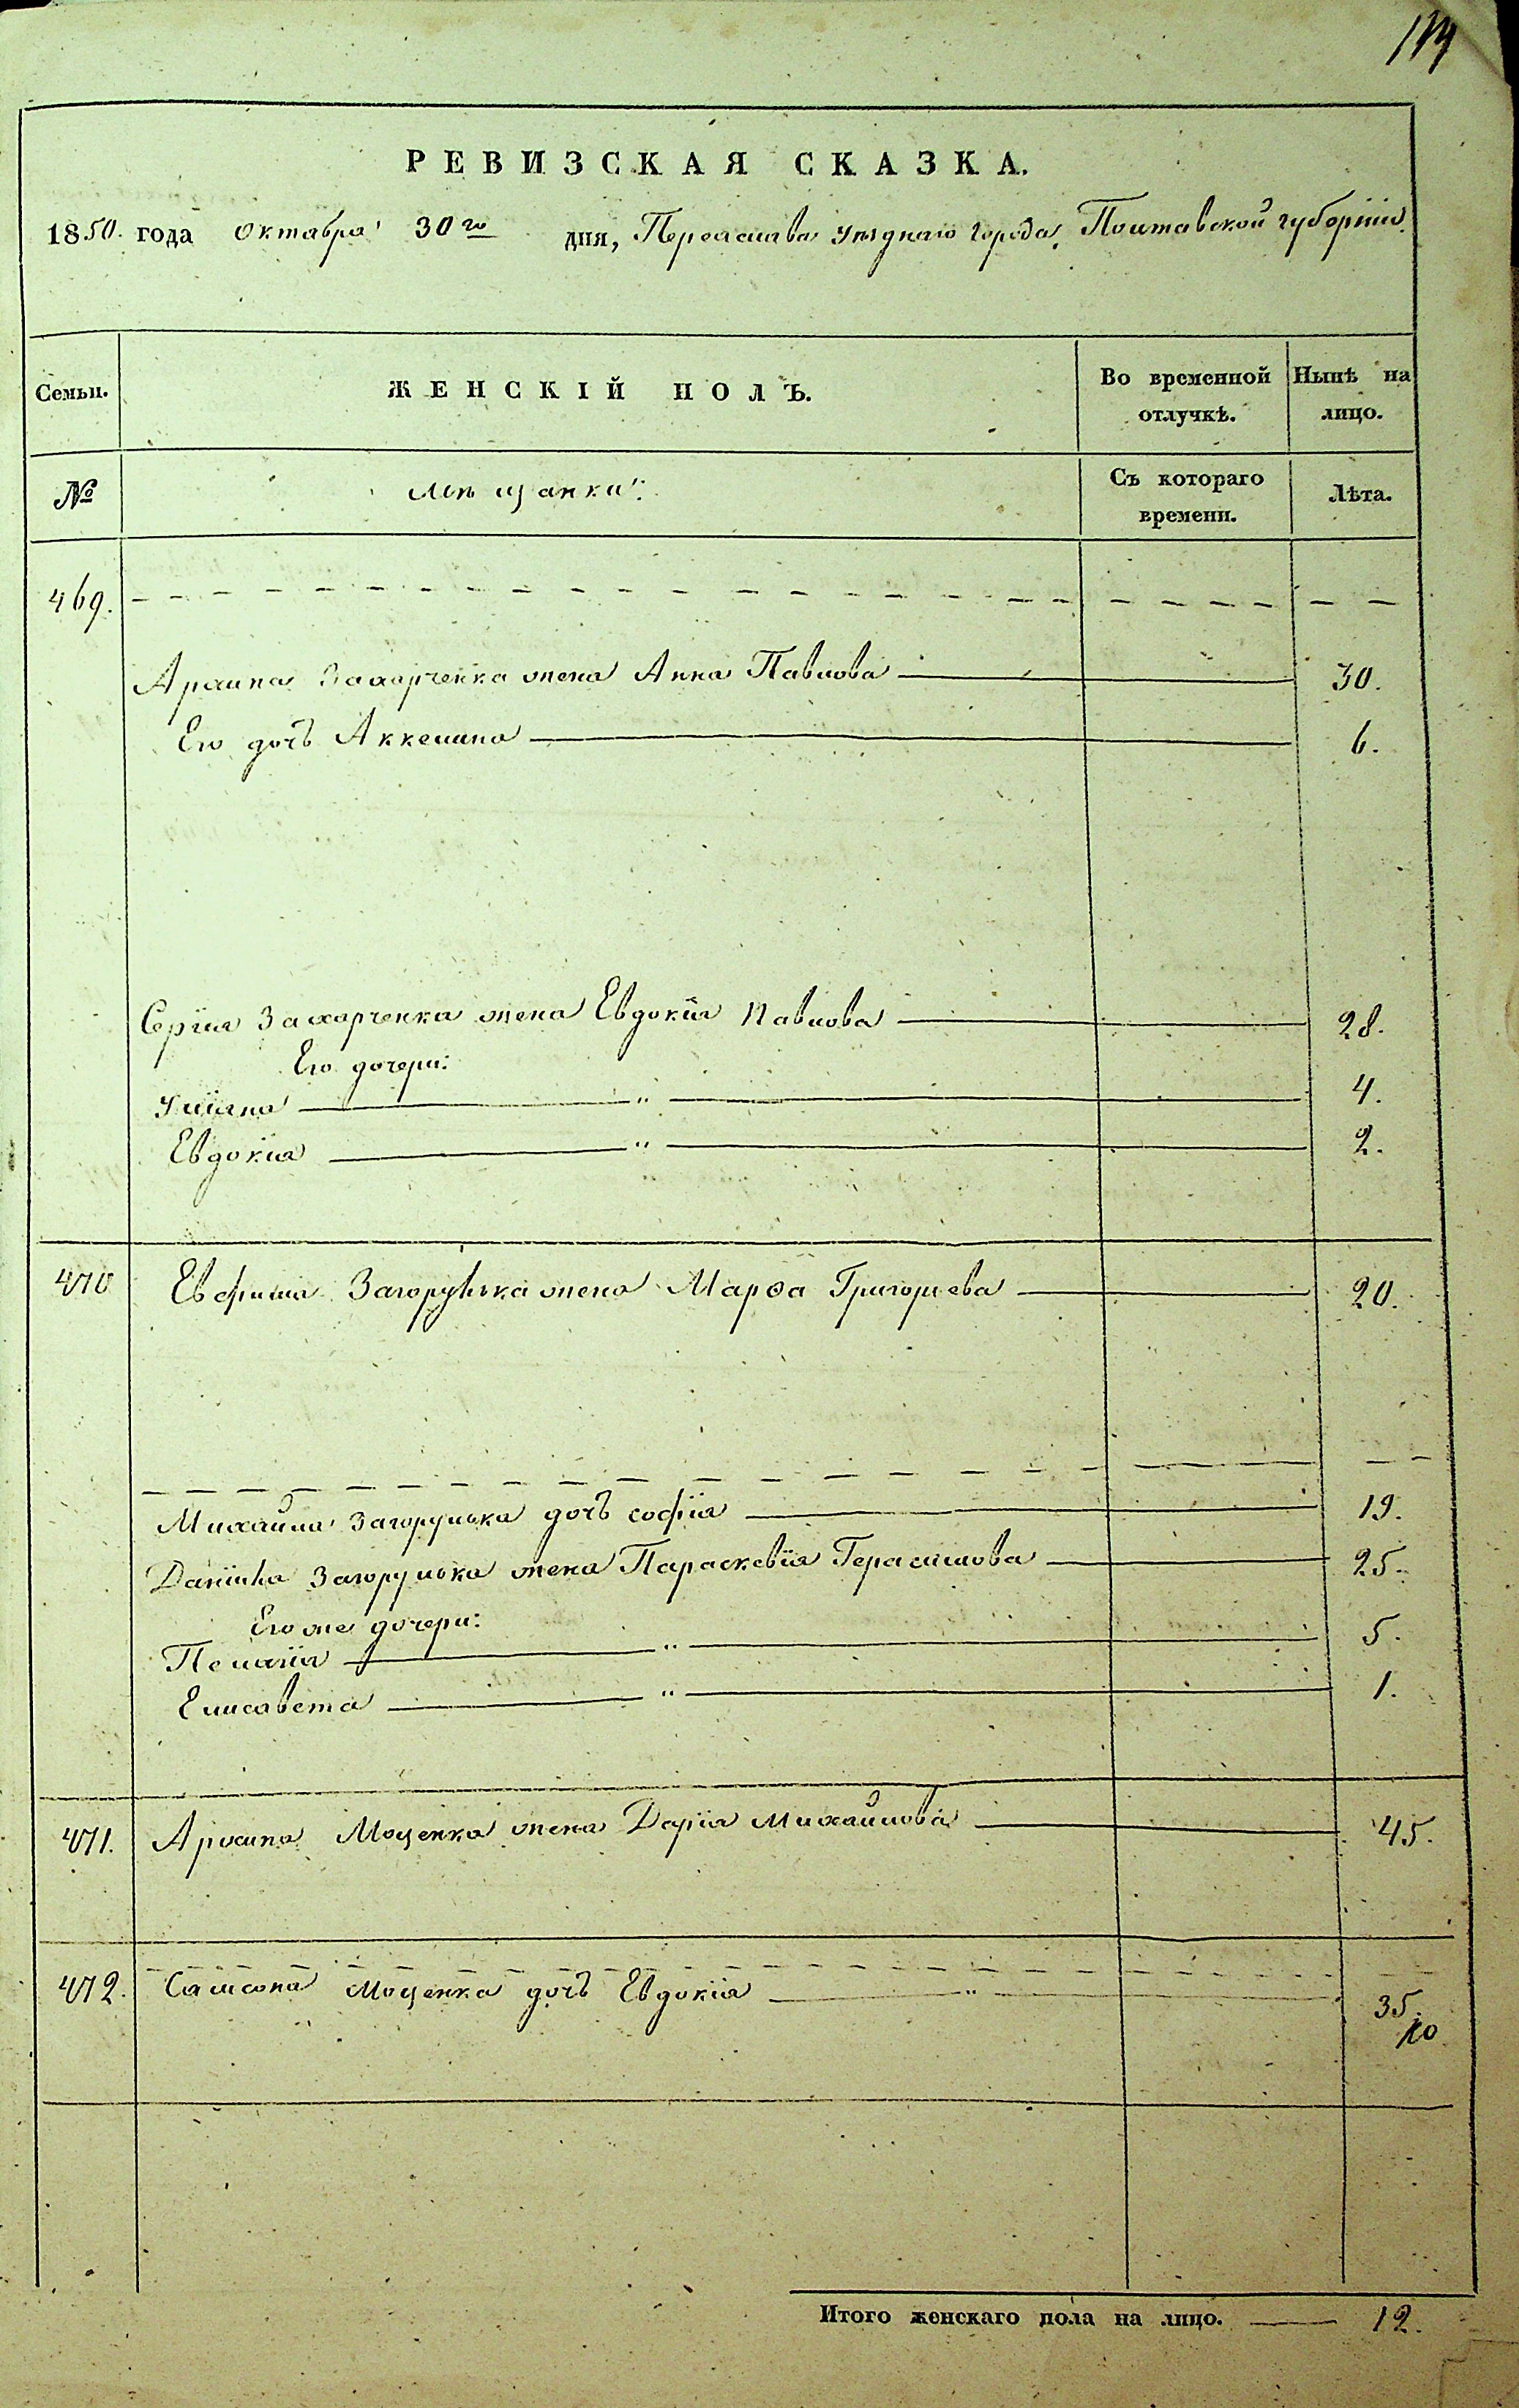 РЕВИЗСКАЯ СКАЗКА.
1850. года Октября 30го дня, Переяслава уѣзднаго города, Полтавской губерніи.
Семьи. ЖЕНСКІЙ ПОЛЪ. Во временной отлучкѣ. Нынѣ на лицо.
№ Мѣщанки: Съ котораго времени. Лѣта.
469.
Архипа Захарченка жена Анна Павлова 30.
Его дочь Аккелина 6.
Сергія Захарченка жена Евдокія Павлова 28.
Его дочери:
Уліяна " 4.
Евдокія " 2.
470 Евфима Загорулька жена Марѳа Григорьева 20.
Михайла Загорулька дочь софія 19.
Даніила Загорулька жена Параскевія Герасимова 25.
Его же дочери:
Пелагія " 5.
Елисавета " 1.
471. Архипа Моценка жена Дарія Михайлова 45.
472. Самсона Моценка дочь Евдокія " 35.
10
Итого женскаго пола на лицо. 12.